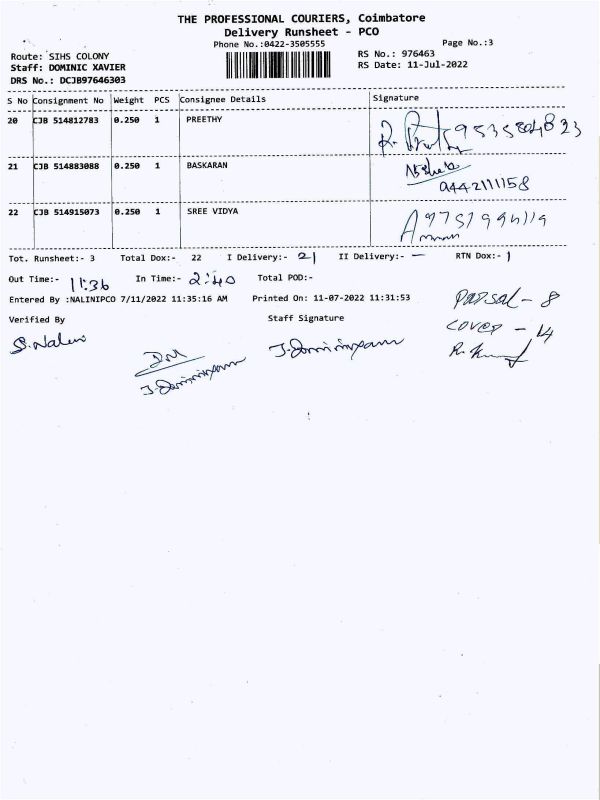 THE PROFESSIONAL COURIERS, Coimbatore
Delivery Runsheet - PCO
Phone No.:0422-3505555 Page No.:3
Route: SIHS COLONY RS No.: 976463
Staff: DOMINIC XAVIER RS Date: 11-Jul-2022
DRS No.: DCJB97646303
S No Consignment No Weight PCS Consignee Details Signature
20 CJB 514812783 0.250 1 PREETHY
21 CJB 514883088 0.250 1 BASKARAN
9442111158
22 CJB 514915073 0.250 1 SREE VIDYA
Tot. Runsheet:- 3 Total Dox:- 22 I Delivery:- 21 II Delivery:- — RTN Dox:- 1
Out Time:- 11:36 In Time:- 2:40 Total POD:-
Entered By :NALINIPCO 7/11/2022 11:35:16 AM Printed On: 11-07-2022 11:31:53
Parsal - 8
Cover - 14
Verified By Staff Signature
S. Nalini